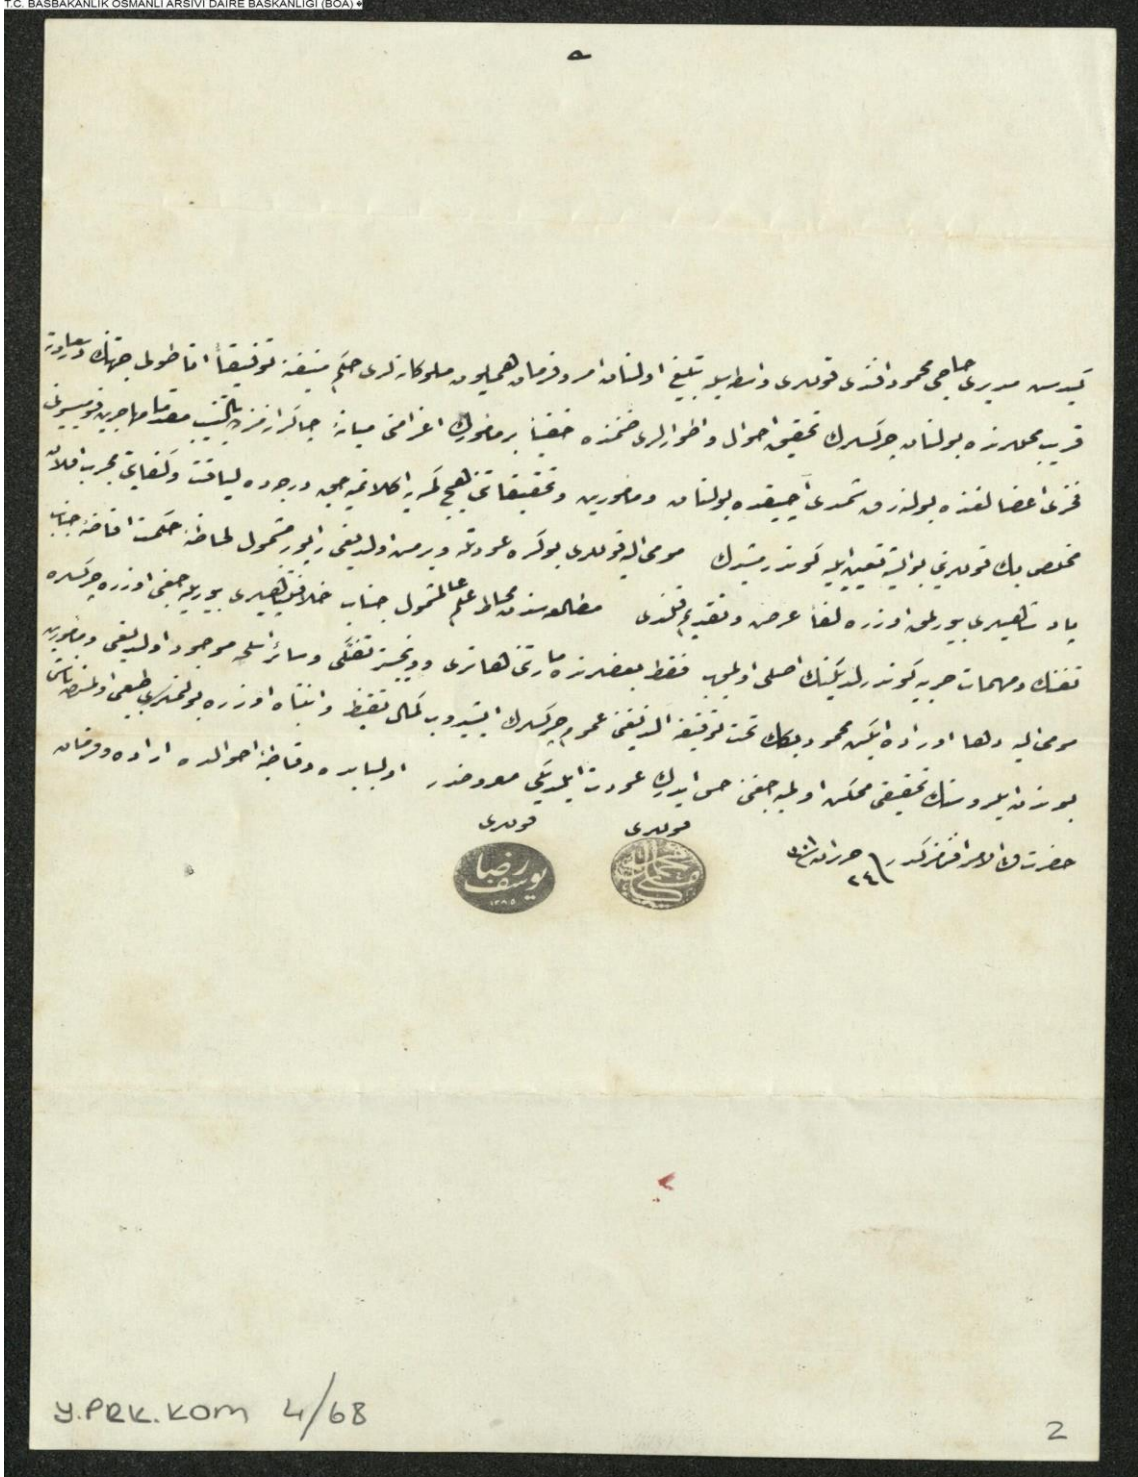 T.C. BAŞBAKANLIK OSMANLI ARŞİVİ DAİRE BAŞKANLIĞI (BOA)
مديرى حاجى محمود افندى قوللرى واسطه‌سيله تبليغ اولنان امر و فرمان همايون ملوكانه‌لرى حكم منيفنه توفيقاً اناطولى جهتنك درسعادته
قريب محللرنده بولنان چركسلرك تحقيق احوال و اطوارلرى ضمننده خفياً بر مأمورك اعزامى ميانۀ چاكرانه‌مزده بالتنسيب مقدما مهاجرين قوميسيونى
فخرى اعضالغنده بولنه‌رق شمدى آچيقده بولنان و مأمورين و تحقيقاتى هيچ كيمسه‌يه اكلاتميه‌جق درجه‌ده لياقت و كفايتى مجرب اولان
مخلص بك قوللرينى بوليته تعيين ايله كوندرمشيدك مومى اليه قوللرى بوكره عودتله ويرمش اولديغى راپور مشمول لحاظۀ حكمت افاضۀ جناب
پادشاهيلرى بيورلمق اوزره لفاً عرض و تقديم قلندى مطالعه‌سندن محاط علم عالمشمول جناب خلافتپناهيلرى بيوريله‌جغى اوزره چركسلره
تفنك و مهمات حربيه كوندرلديكنك اصلى اولميوب فقط بعضلرنده مارتنى هانرى و وينچستر تفنكى و سائر اسلحه موجود اولديغى و مأمور
مومى اليه دها اوراده ايكن محمود بكك تحت توقيفه النديغنى عموم چركسلرك ايشيدوب كمال تيقظ و انتباه اوزره بولنملرى طبيعى اولمسنه ناشى
بوندن ايلروسنك تحقيقى ممكن اوليه‌جغنى حس ايدرك عودت ايلديكى معروضدر اولبابده و قاطبۀ احوالده اراده و فرمان
حضرت من له الامر افندمزكدر ٢٤ حزيران سنه ٣٠١
قوللرى قوللرى
يوسف رضا
١٢٨٥
Y.PRK.KOM 4/68
2